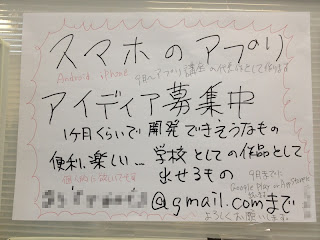 スマホのアプリ
Android iPhone
アイディア募集中
1ヶ月くらいで開発できそうなもの
便利、楽しい… 学校としての作品として
出せるもの
9月までに
Google Play or App Storeに
@gmail.comまで
よろしくお願いします。